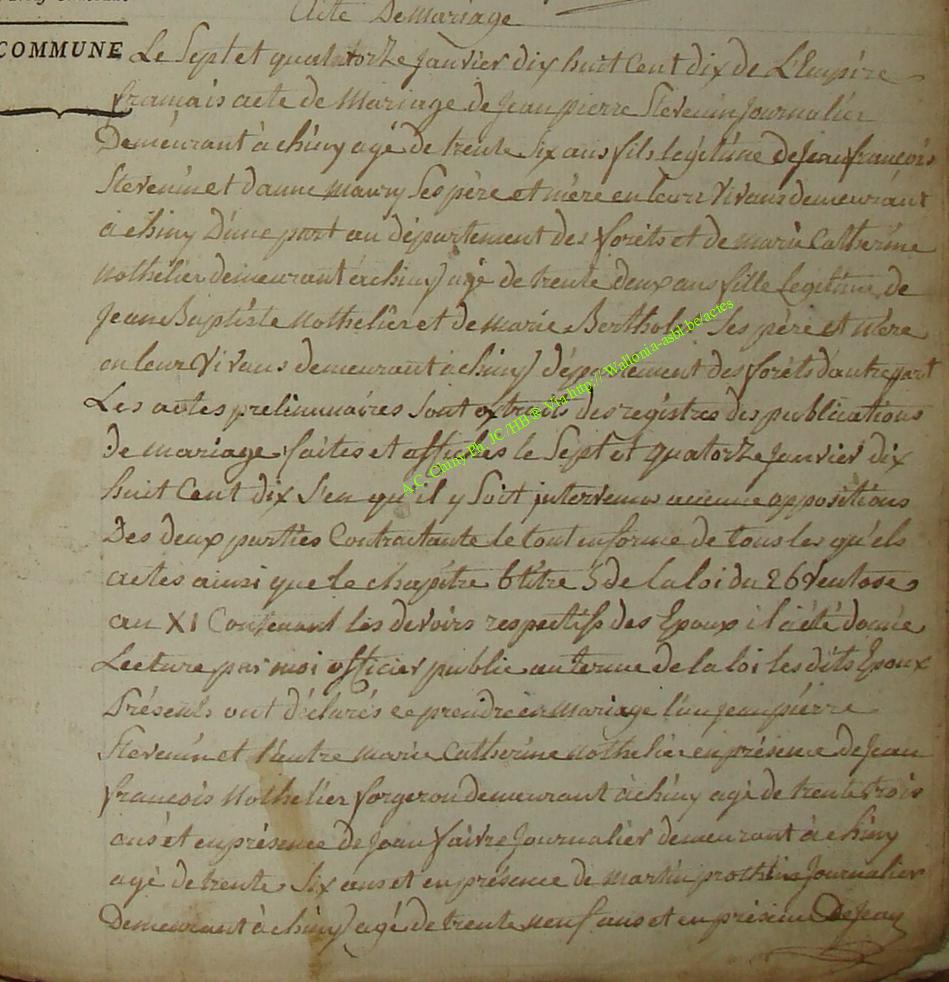 Acte De Mariage
COMMUNE
Le Sept et quatortze janvier dix huit Cent dix de L'Empire
francais acte de Mariage de jean pierre Stevenin journalier
Demeurant à chiny agé de trente Six ans fils legitime de jean françois
Stevenin et d'anne maury Ses père et mère en leurs Vivans demeurant
à chiny D'une part au département des forêts et de marie Catherine
Nothelier demeurant à chiny agé de trente deux ans fille legitime de
jean Baptiste Nothelier et de Marie Berthol Ses père et mère
en leur Vivans demeurant à chiny département des forêts d'autre part
Les actes preliminaires Sont extraits des registres des publications
De mariage faites et affichés le Sept et quatortze janvier dix
huit Cent dix S'en qu'il y Soit intervenus aucune oppositions
Des deux parties Contractante le tout en forme de tous les qu'els
actes ainsi que le chapitre 6 titre 5 de la loi du 26 Ventose
an XI Contenant les devoirs respectifs des Epoux il à été donné
Lecture par moi officier public au terme de la loi les dits Epoux
Présents ont déclarés ce prendre en mariage l'un jean pierre
Stevenin et l'autre marie Catherine nothelier en présence de jean
françois Nothelier forgeron demeurant à chiny agé de trente trois
ans et en présence de jean faivre journalier demeurant à chiny
agé de trente Six ans et en présence de martin prothin journalier
Demeurant à chiny agé de trente neuf ans et en présence De jean
A.C. Chiny Ph. JC /HB & Via http://Wallonia-asbl.be/actes